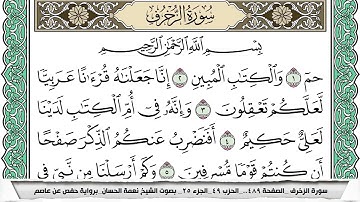 سُورَةُ الزُّخْرُفِ
بِسْمِ اللَّهِ الرَّحْمَٰنِ الرَّحِيمِ
حمٓ ١ وَالْكِتَابِ الْمُبِينِ ٢ إِنَّا جَعَلْنَاهُ قُرْءَٰنًا عَرَبِيًّا
لَّعَلَّكُمْ تَعْقِلُونَ ٣ وَإِنَّهُ فِي أُمِّ الْكِتَابِ لَدَيْنَا
لَعَلِيٌّ حَكِيمٌ ٤ أَفَنَضْرِبُ عَنكُمُ الذِّكْرَ صَفْحًا
أَن كُنتُمْ قَوْمًا مُّسْرِفِينَ ٥ وَكَمْ أَرْسَلْنَا مِن نَّبِيٍّ فِي
سورة الزخرف .. الصفحة ٤٨٩ .. الحزب ٤٩ .. الجزء ٢٥ .. بصوت الشيخ نعمة الحسان .. برواية حفص عن عاصم